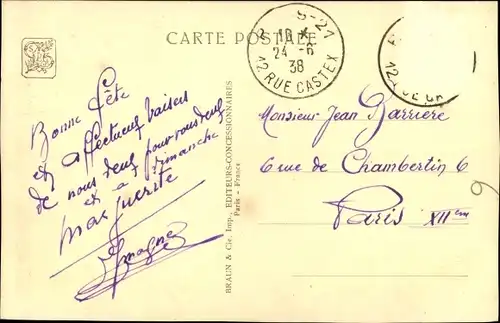 CARTE POSTALE
S-21
16 *
24 -6
38
12. RUE CASTEX
12.
Bonne fête
et affectueux baisers
de nous deux pour vous deux
et a dimanche
Marguerite
Monsieur Jean Barrière
6 rue de Chambertin 6
Paris XIIem
9
BRAUN & Cie, Imp., EDITEURS-CONCESSIONNAIRES
Paris - France